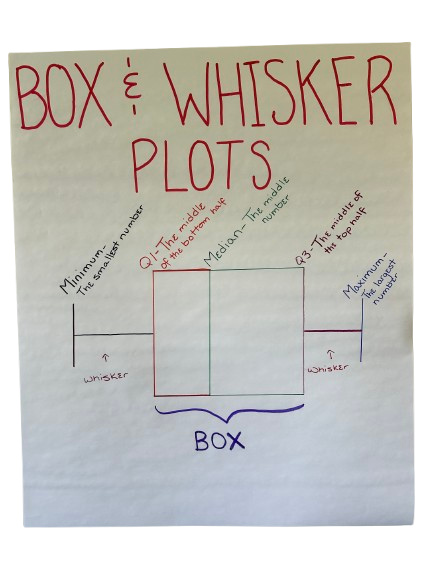 BOX & WHISKER
PLOTS
Minimum-
The smallest number
Q1-The middle
of the bottom half
Median-The middle
number
Q3-The middle of
the top half
Maximum-
The largest
number
whisker
whisker
BOX